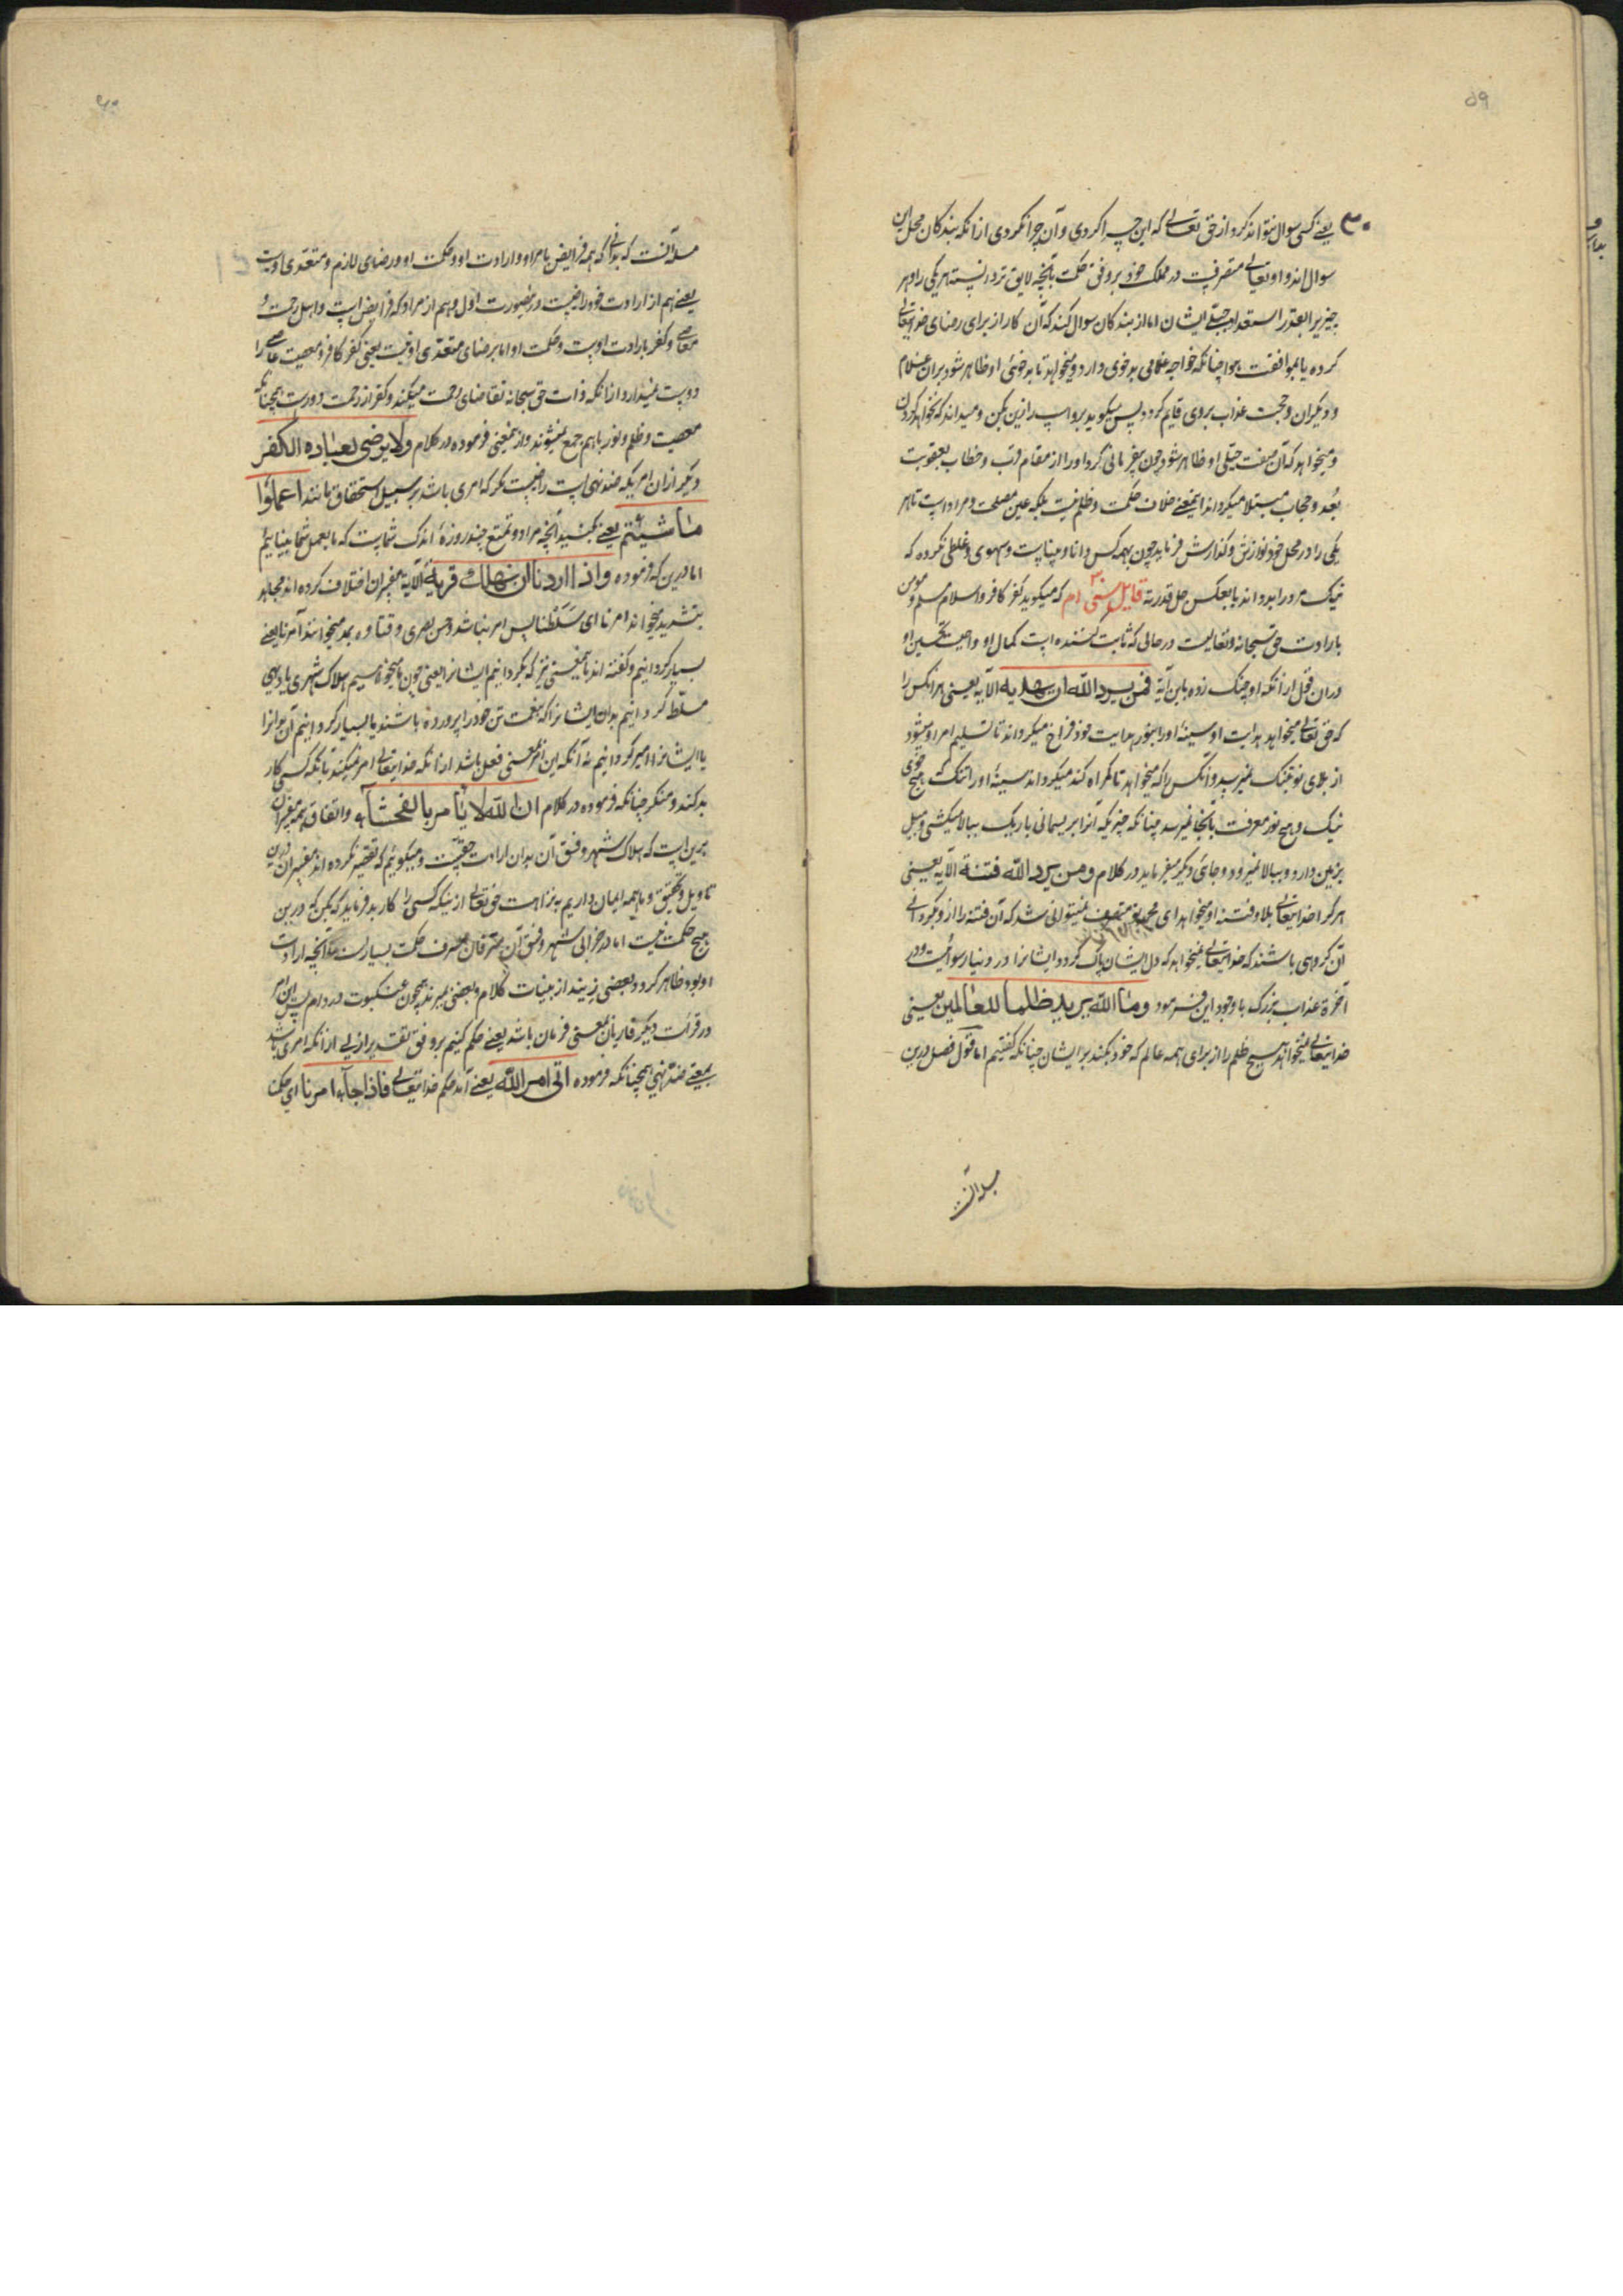 ۵۹
یعنی کسی سوال نتواند کرد از حق تعالی که این چرا کردی و آن چرا نکردی ازانکه بندکان محل این
سوال اند و او تعالی متصرفست در ملک خود بر وفق حکمت بآنچه لایق تر دانسته هر یکی را و هر
چیزیرا بقدر استعداد جبلّی ایشان اما از بندکان سوال کند که آن کار از برای رضای خدایتعالی
کرده یا بموافقت هوا چنانکه خواجه غلامی بدخوی دارد و میخواهد تا بدخوئی او ظاهر شود بران غلام
و دیکران و حجت عذاب بروی قایم کردد پس میکوید برو اسپ را زین بکن و میداند که نخواهد کردن
و میخواهد که آن صفت جبلّی او ظاهر شود چون بیفرمانی کرد او را از مقام قرب و خطاب بعقوبت
بُعد و حجاب مبتلا میکرداند اینمعنی خلاف حکمت و ظلم نیست بلکه عین مصلحت و مراد است تا هر
یکی را در محل خود نوازش و کدازش فرماید چون بهمه کس دانا و بیناست و سهوی و غلطی نکرده که
نیک مر و را بد داند یا بعکس حل قدریّه قایل سنّی ام که میکوید کفر کافر و اسلام مسلم و مومن
بارادت حق سبحانه و تعالیست در حالی که ثابت کننده است کمال او و احدیت
دران قول ازانکه او چنک زده باین آیة فمن یرد الله ان یهدیه الآیه یعنی هر آنکس را
که حق تعالی میخواهد هدایت او سینهٔ او را بنور هدایت خود فراخ میکرداند تا تسلیم امر او میشود
از بلای نو تتنک نمیرسد و آنکس را که میخواهد تا کمراه کند میکرداند سینهٔ او را تنک که هیچ خوی
نیک و هیچ نور معرفت بآنجا نمیرسد چنانکه چیزیکه آنرا بریسمانی باریک ببالا میکشی و میل
بزمین دارد و ببالا نمیرود و جائی دیکر میفرماید در کلام و من یرد الله فتنة الآیه یعنی
هر کرا خدایتعالی بلا و فتنهٔ او میخواهد ای محمد تو متصرف نمیتوانی شد که آن فتنه را از و بکردانی
آن کروهی باشند که خدایتعالی نمیخواهد که دل ایشان پاک کردد ایشانرا در دنیا رسوائیست و در
آخرة عذاب بزرک با وجود این فرمود و ما الله یرید ظلما للعالمین یعنی
خدایتعالی نمیخواهد هیچ ظلم را از برای همه عالم که خود بکند بر ایشان چنانکه کفتیم اما قول فصل درین
مسله آنست که بدانی که همه فرایض بامر او و ارادت او و حکمت او و رضای لازم و متعدی اوست
یعنی هم از ارادت خود راضیست در صورت اول و هم از مراد که فرایض است و اهل رحمت و
معاصی و کفر بارادت اوست و حکمت او اما برضای متعدی او نیست یعنی کفر کافر و معصیت عاصی را
دوست نمیدارد ازانکه ذات حق سبحانه تقاضای رحمت میکند و کفر از رحمت دورست همچنانکه
معصیت و ظلم و نور باهم جمع نمیشوند و از ینمعنی فرموده در کلام ولا یرضی لعباده الکفر
دیکر ازان امریکه ضد نهی است راضیست مکر که امری باشد بر سبیل استحقاق مانند اعملوا
ما شیئتم یعنی بکنید آنچه مراد و تمتع چند روزهٔ اندک شماست که ما بعمل شما بینائیم
اما درین که فرموده و اذا اردنا ان نهلک قریة الآیة مفسران اختلاف کرده اند مجاهد
بتشدید میخواند امرنا ای سَلَّطنا پس امر نباشد و حسن بصری و قتاده بمد میخوانند آمرنا یعنی
بسیار کردانیم و کفته اند باینمعنی نیز که بکردانیم ایشانرا یعنی چون میخواهیم هلاک شهری یا دیهی
مسلّط کردانیم بدان ایشانرا که بنعمت تن خود را پرورده باشند یا بسیار کردانیم آن بدانرا
یا ایشانرا امیر کردانیم نه آنکه این امر بمعنی فعل باشد ازانکه خدایتعالی امر نمیکند بآنکه کسی کار
بد کند و منکر چنانکه فرموده در کلام ان الله لا یأمر بالفحشآء و اتفاق همه مفسران
برین است که هلاک شهر و فسق آن بدان ارادت حقست و میکوئیم که تقصیر نکرده اند مفسران درین
تاویل و تحقیق و ما همه ایمان داریم بنزاهت حق تعالی از ینکه کسی را کار بد فرماید که بکن که درین
هیچ حکمت نیست اما در خرابی شهر و فسق آن مترفان مسرف حکمت بسیارست تا آنچه ارادت
او بود ظاهر کردد بعضی زیند از بینات کلام و بعضی بمیرند همچون عنکبوت در دام پس این امر
در قرائت دیکر قاریان بمعنی فرمان باشد یعنی حکم کنیم بر وفق تقدیر ازلی ازانکه امری باشد
بمعنی ضد نهی همچنانکه فرموده اتی امر الله یعنی آمد حکم خدایتعالی فاذا جآء امرنا ای حکمنا